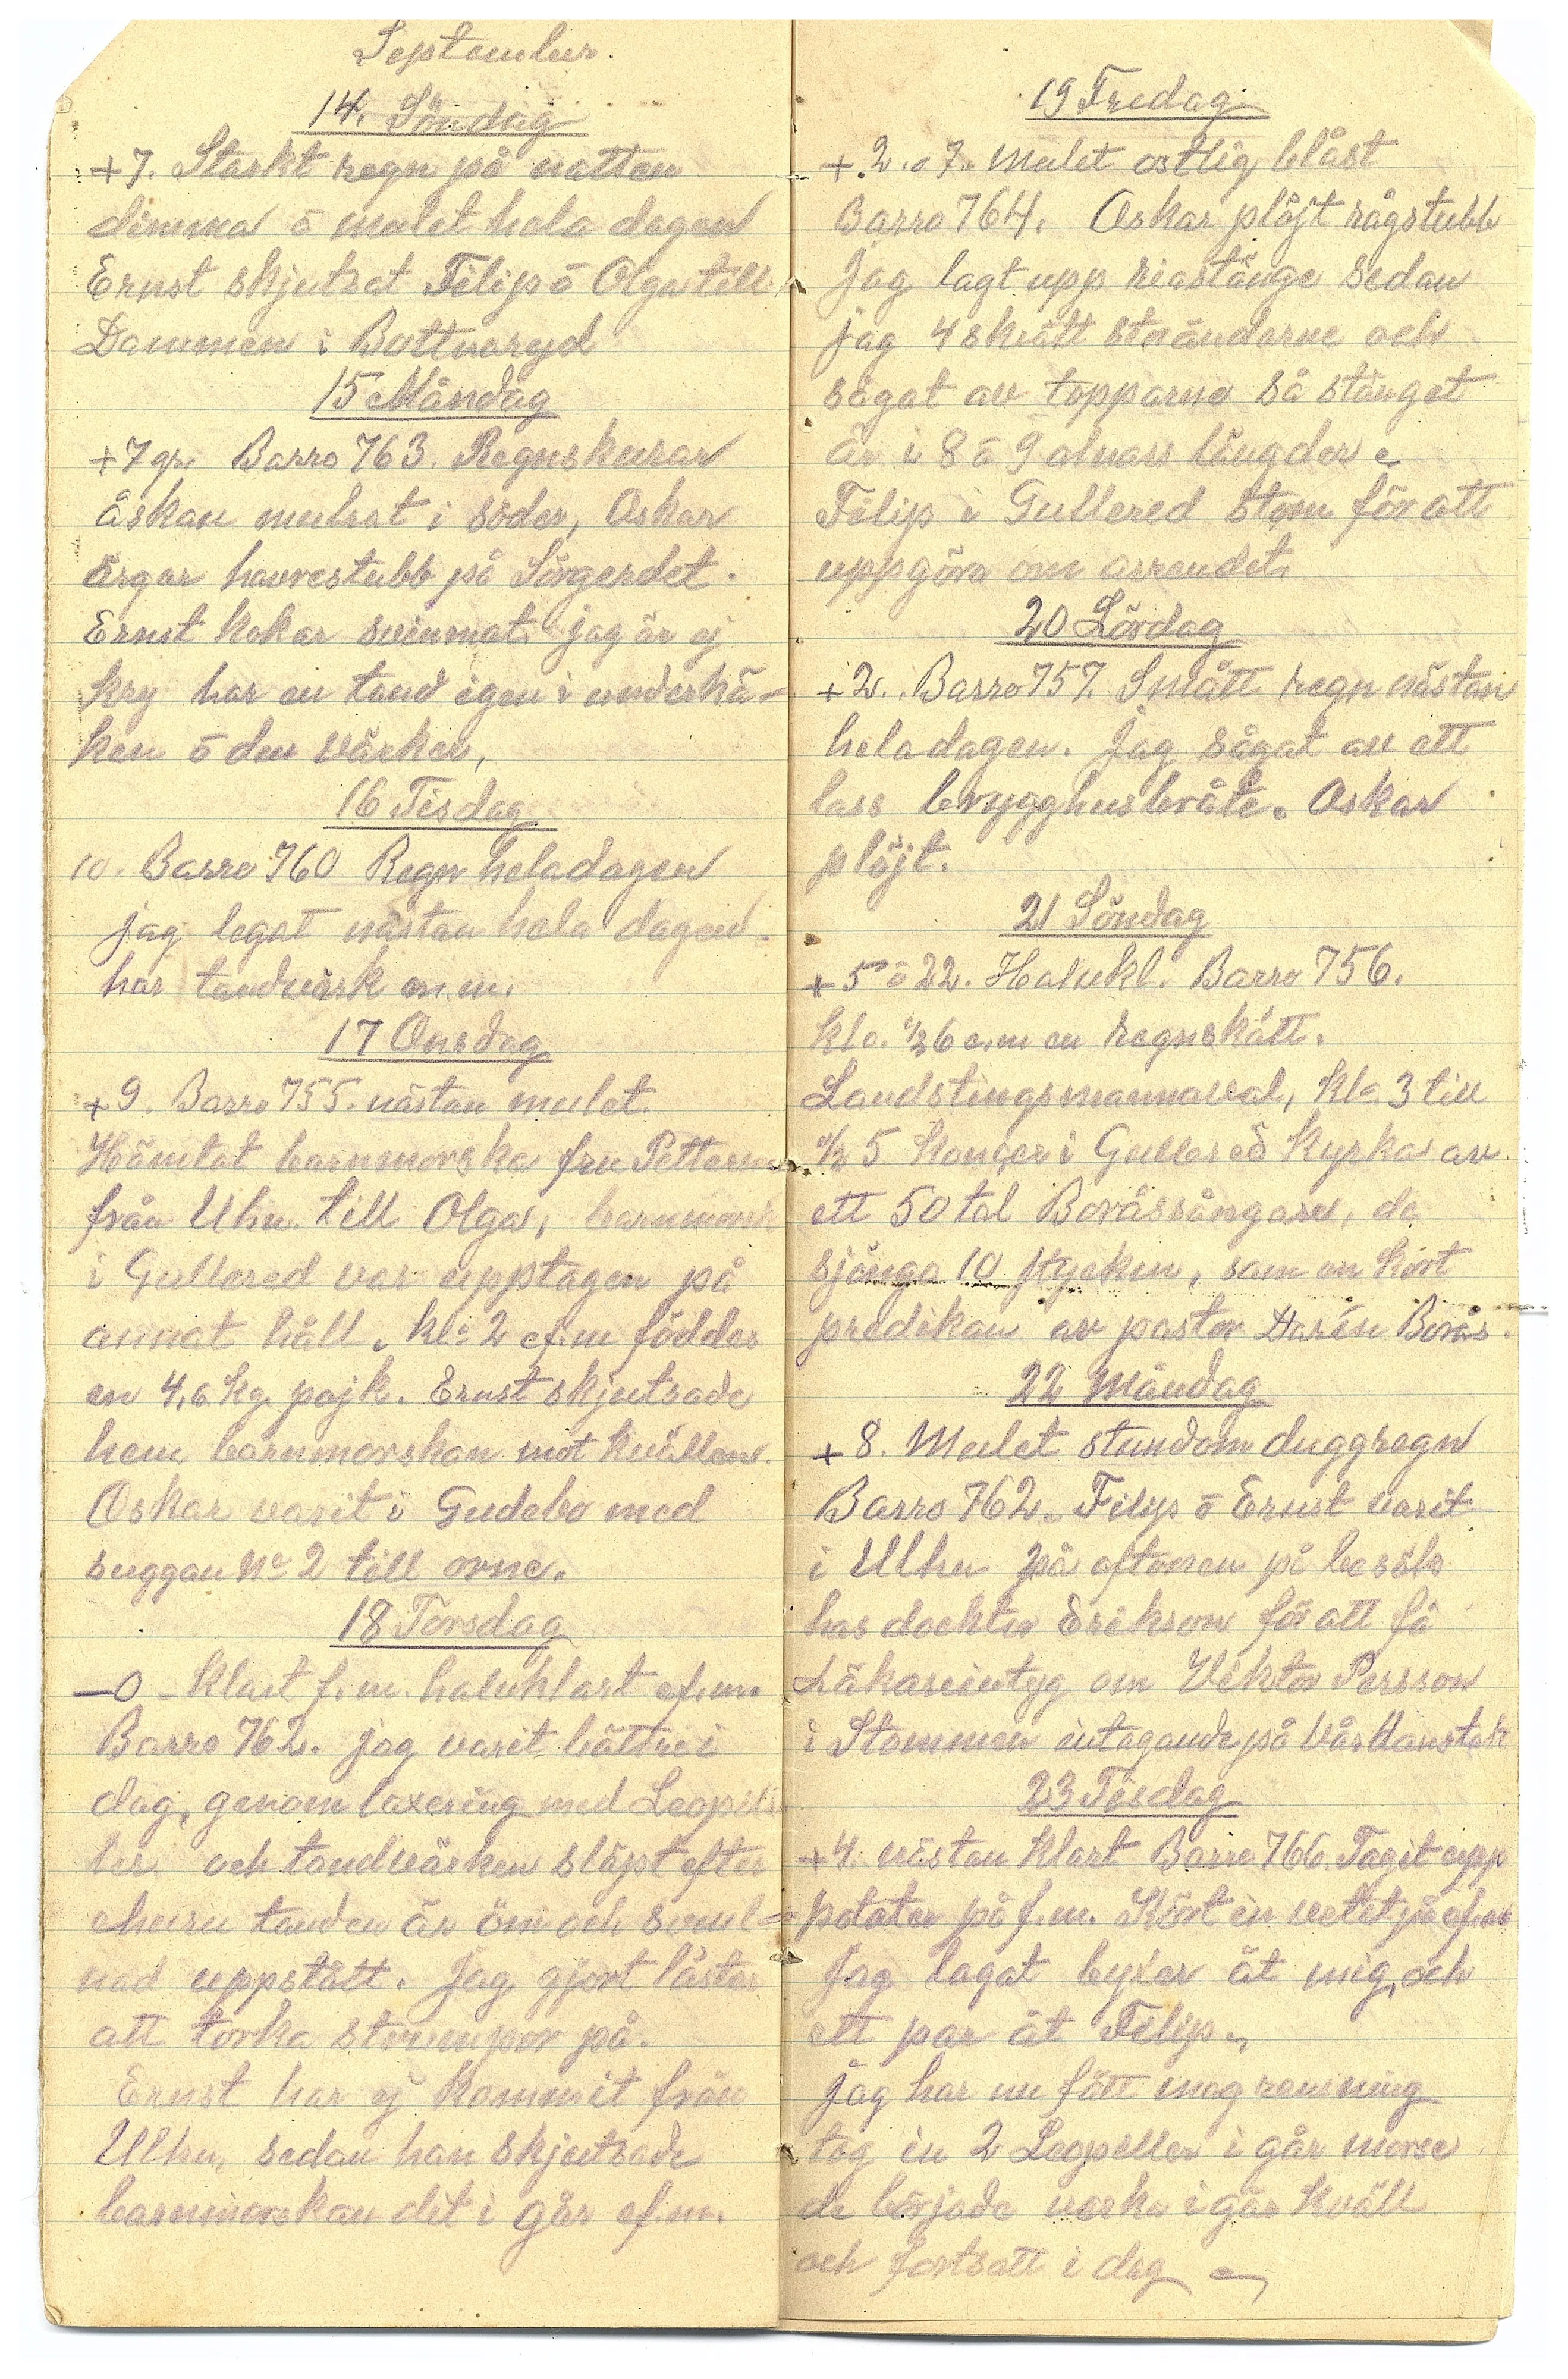 September.
14. Söndag
+7. Starkt regn på natten
dimma ō mulet hela dagen
Ernst skjutsat Filip ō Olga till
Dammen i Bottnaryd
15 Måndag
+7 gr. Barro 763. Regnskurar
åskan mulrat i söder, Oskar
ärgar havrestubb på Sörgerdet.
Ernst kokar svinmat. jag är ej
kry har en tand igen i underkä-
ken ō den värker,
16 Tisdag
10. Barro 760 Regn heladagen
jag legat nästan hela dagen.
har tandvärk m.m.
17 Onsdag
+9. Barro 755. nästan mulet.
Hämtat barnmorska fru Petterson
från Uhn. till Olga, barnmorsk
i Gullered var upptagen på
annat håll. kl. 2 ef.m föddes
en 4,6 kg. pojk. Ernst skjutsade
hem barnmorskan mot kvällen.
Oskar varit i Gudebo med
suggan No 2 till orne.
18 Torsdag
—0 – Klart f.m. halvklart ef.m.
Barro 762. jag varit bättre i
dag, genom laxering med Leopil
ler och tandvärken släpt efter
ehuru tanden är öm och svul-
nad uppstått. Jag gjort läster
att torka strumpor på.
Ernst har ej kommit från
Ulhn, sedan han skjutsade
barnmorskan dit i går ef.m.
19 Fredag
+.2. o 7. Mulet ostlig blåst
Barro 764. Oskar plöjt rågstubb
Jag lagt upp riastänge sedan
jag 4 skrätt störändarne och
sågat av topparna så stänget
är i 8 ō 9 alnars längder
Filip i Gullered Stom för att
uppgöra om arrendet.
20 Lördag
+2. Barro 757. Smått regn nästan
heladagen. Jag sågat av ett
lass brygghusbråte. Oskar
plöjt.
21 Söndag
+5 ō 22. Halvkl. Barro 756.
kl. 1/2 6 e.m en regnskått.
Landstingsmannaval, kl. 3 till
1/2 5 Konçer i Gullered Kyrka av
ett 50 tal Boråssångare, de
sjönga 10 stycken, sam en kort
predikan av pastor Darén Borås.
22 Måndag
+8. Mulet stundom duggregn
Barro 762. Filip ō Ernst varit
i Ulhn på aftonen på besök
hos docktor Erikson för att få
Läkareintyg om Viktor Persson
i Stommen intagande på vårdanstalt
23 Tisdag
+4 nästan klart Barro 766. Tagit upp
potater på f.m. Kört in vetet på ef.m
Jag lagat byxer åt mig, och
ett par åt Filip.
jag har nu fått magrensning
tog in 2 Leopiller i går morse
de började verka i går kväll
och fortsatt i dag